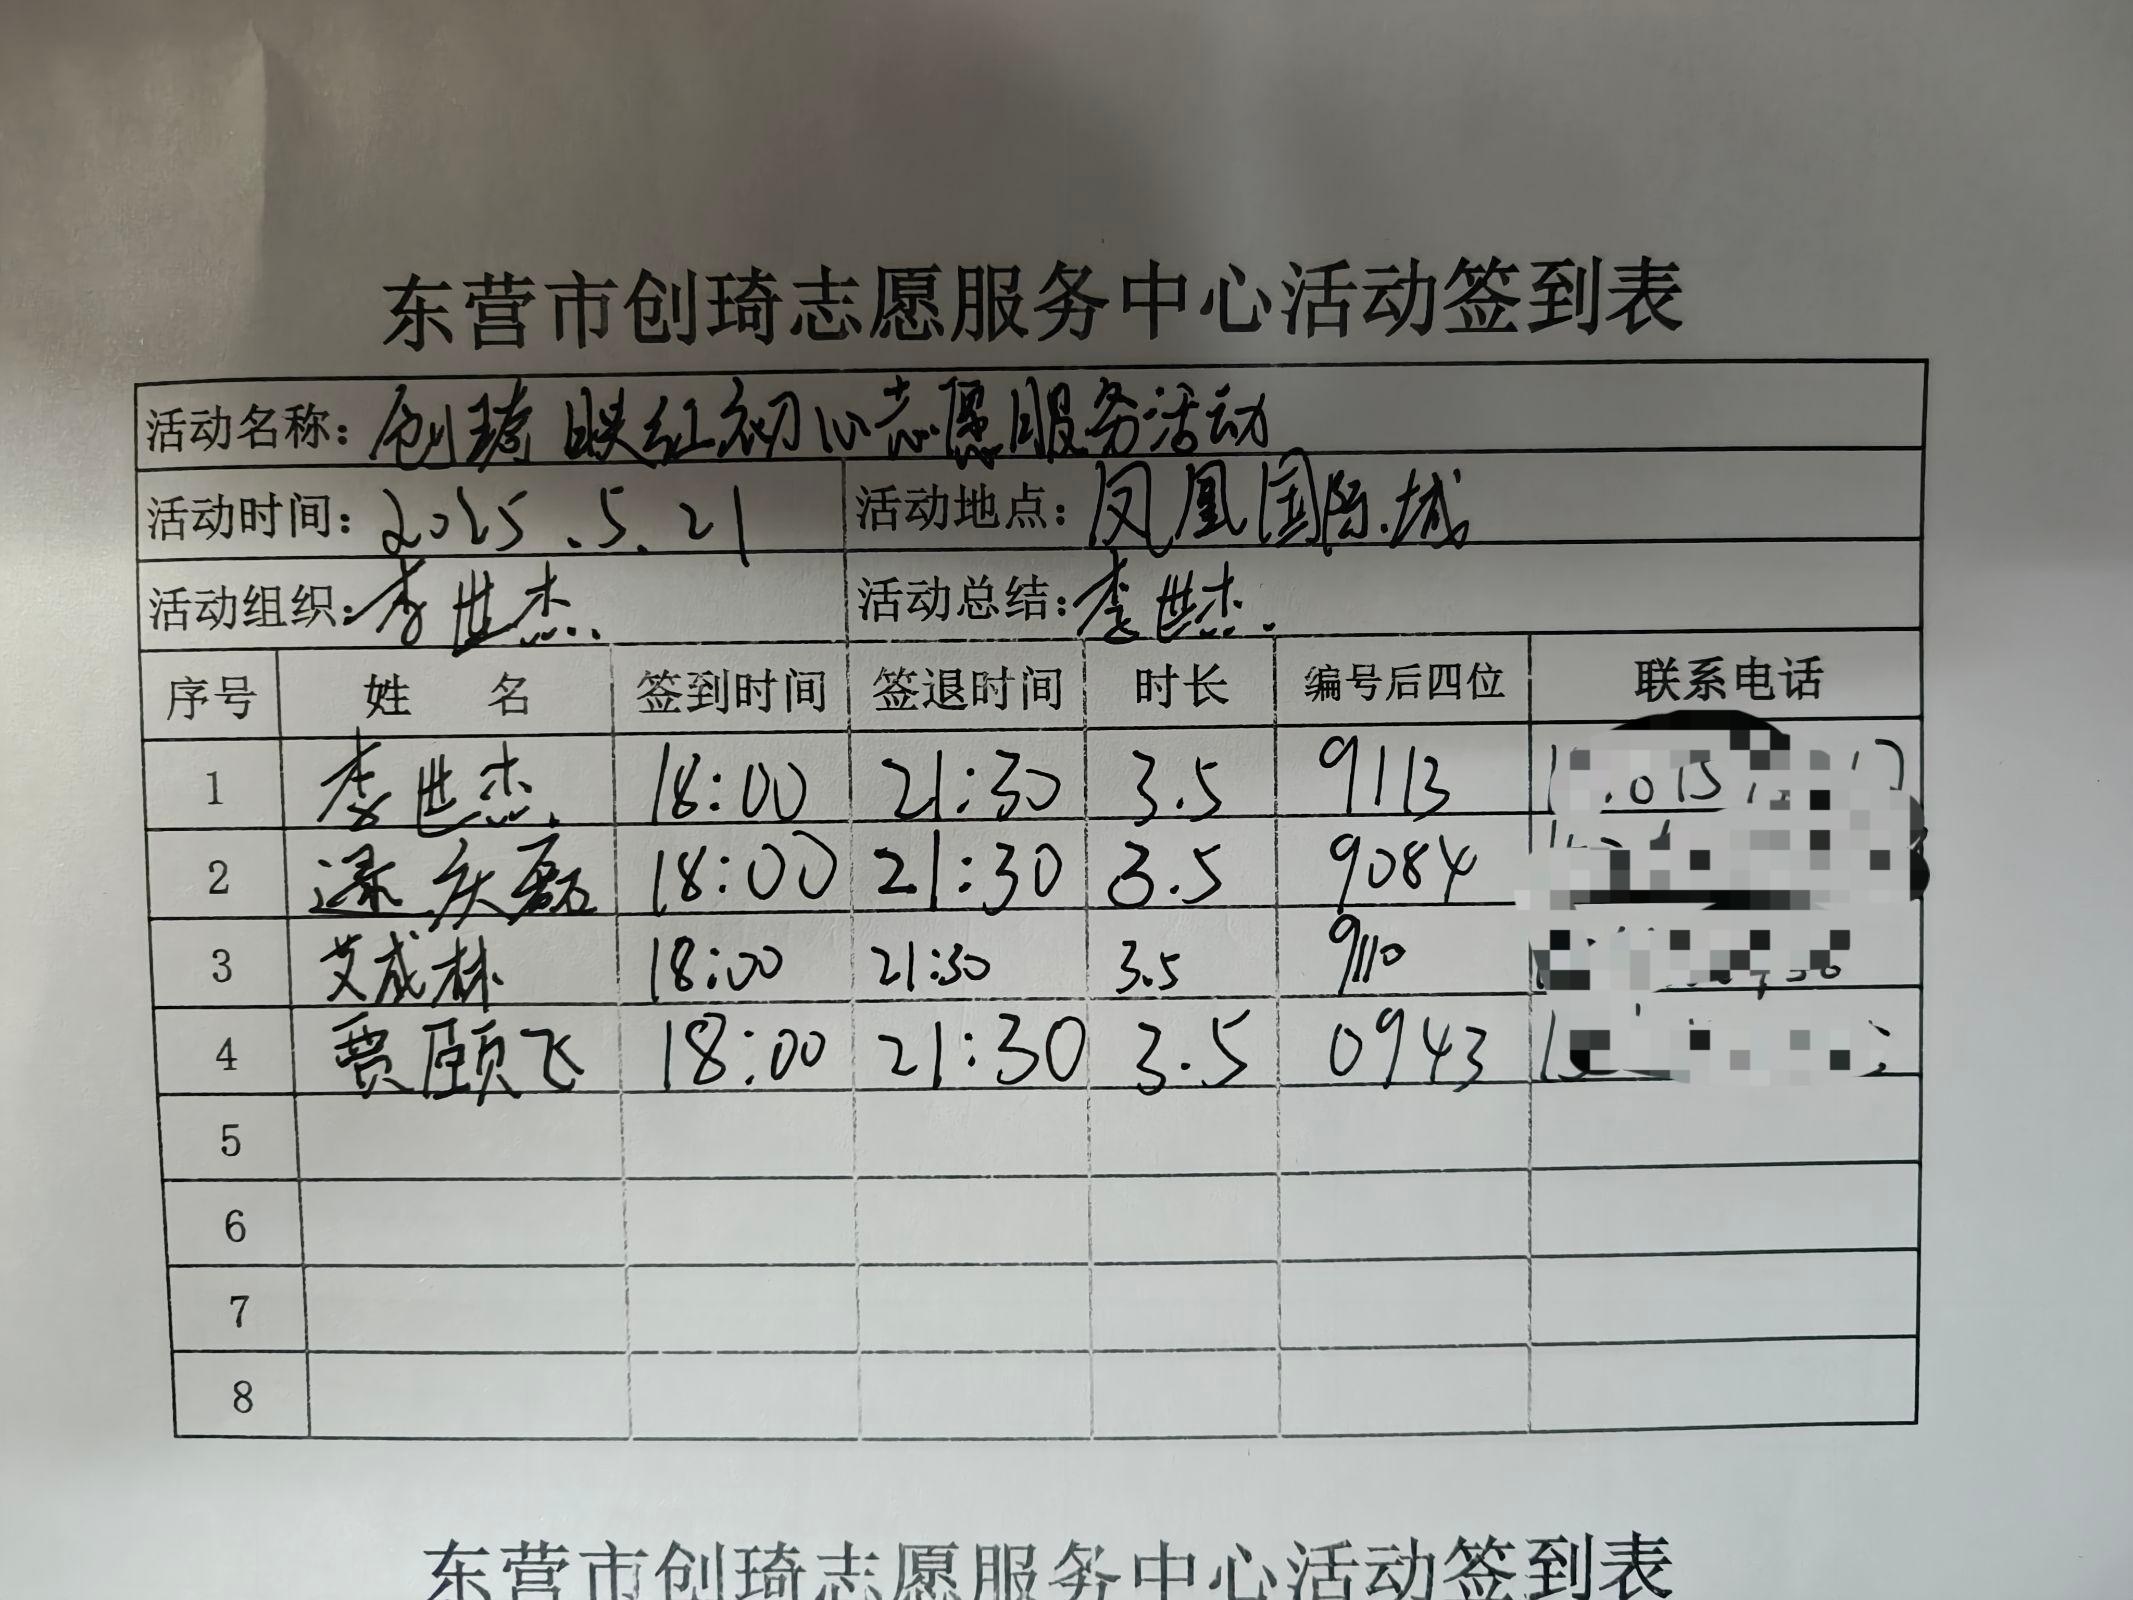 东营市创琦志愿服务中心活动签到表
活动名称：创琦映红初心志愿服务活动
活动时间：2025.5.21 活动地点：凤凰国际城
活动组织：李世杰 活动总结：李世杰
序号 姓 名 签到时间 签退时间 时长 编号后四位 联系电话
1 李世杰 18:00 21:30 3.5 9113
2 逯庆磊 18:00 21:30 3.5 9084
3 艾成林 18:00 21:30 3.5 9110
4 贾颐飞 18:00 21:30 3.5 0943
5
6
7
8
东营市创琦志愿服务中心活动签到表